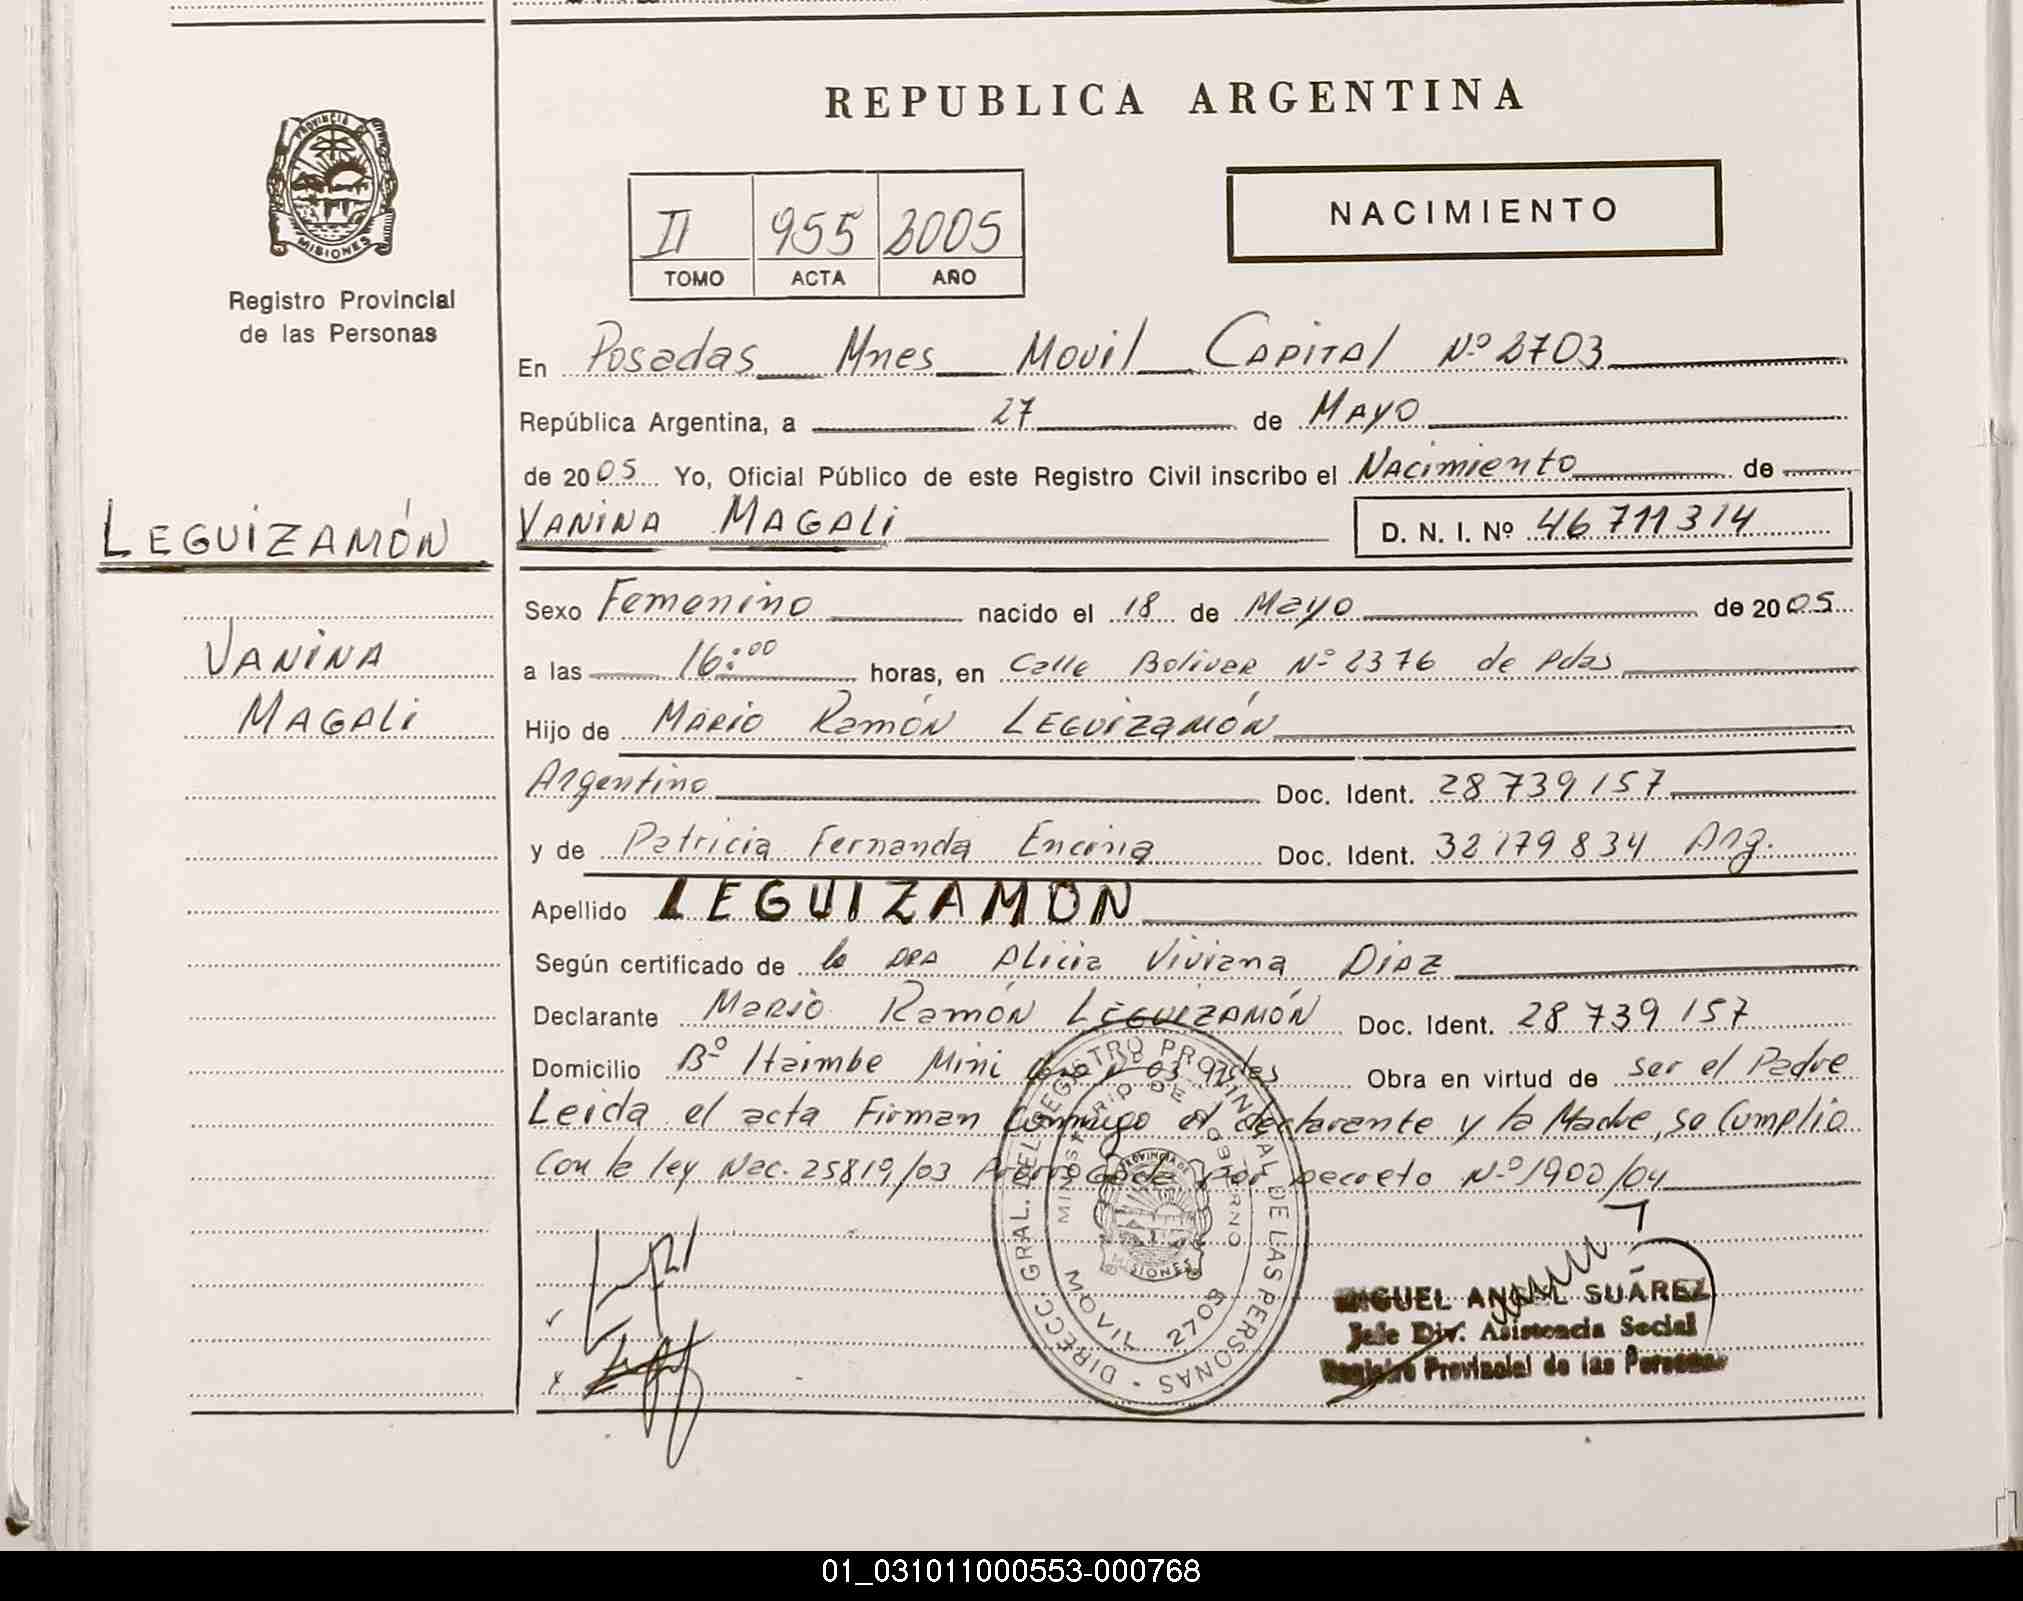 REPUBLICA ARGENTINA
PROVINCIA DE
MISIONES
Registro Provincial
de las Personas
II 955 2005
TOMO ACTA AÑO
NACIMIENTO
En Posadas Mnes Movil Capital Nº 2703
República Argentina, a 27 de Mayo
de 2005 Yo, Oficial Público de este Registro Civil inscribo el Nacimiento de
VANINA MAGALI D. N. I. Nº 46 711 314
LEGUIZAMÓN
VANINA
MAGALI
Sexo Femenino nacido el 18 de Mayo de 2005
a las 16:00 horas, en Calle Bolivar Nº 2376 de Pdas
Hijo de Mario Ramón Leguizamón
Argentino Doc. Ident. 28 739 157
y de Patricia Fernanda Encina Doc. Ident. 32 179 834 Arg.
Apellido LEGUIZAMON
Según certificado de la DRA Alicia Viviana Diaz
Declarante Mario Ramón Leguizamón Doc. Ident. 28 739 157
Domicilio Bº Itaimbe Mini Nº 03 Obra en virtud de ser el Padre
Leida el acta Firman Conmigo el declarante y la Madre, se Cumplio
Con la ley Nac. 25819/03 Prorrogada por Decreto Nº 1900/04
DIRECC. GRAL. DEL REGISTRO PROVINCIAL DE LAS PERSONAS
MINISTERIO DE GOBIERNO
PROVINCIA DE
MISIONES
MOVIL 2703
MIGUEL ANGEL SUÁREZ
Jefe Div. Asistencia Social
Registro Provincial de las Personas
01_031011000553-000768